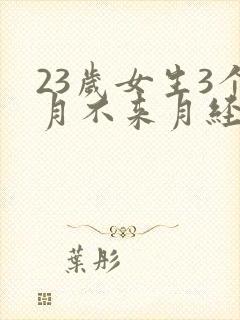 23歲女生3个
月不來月經
葉彤